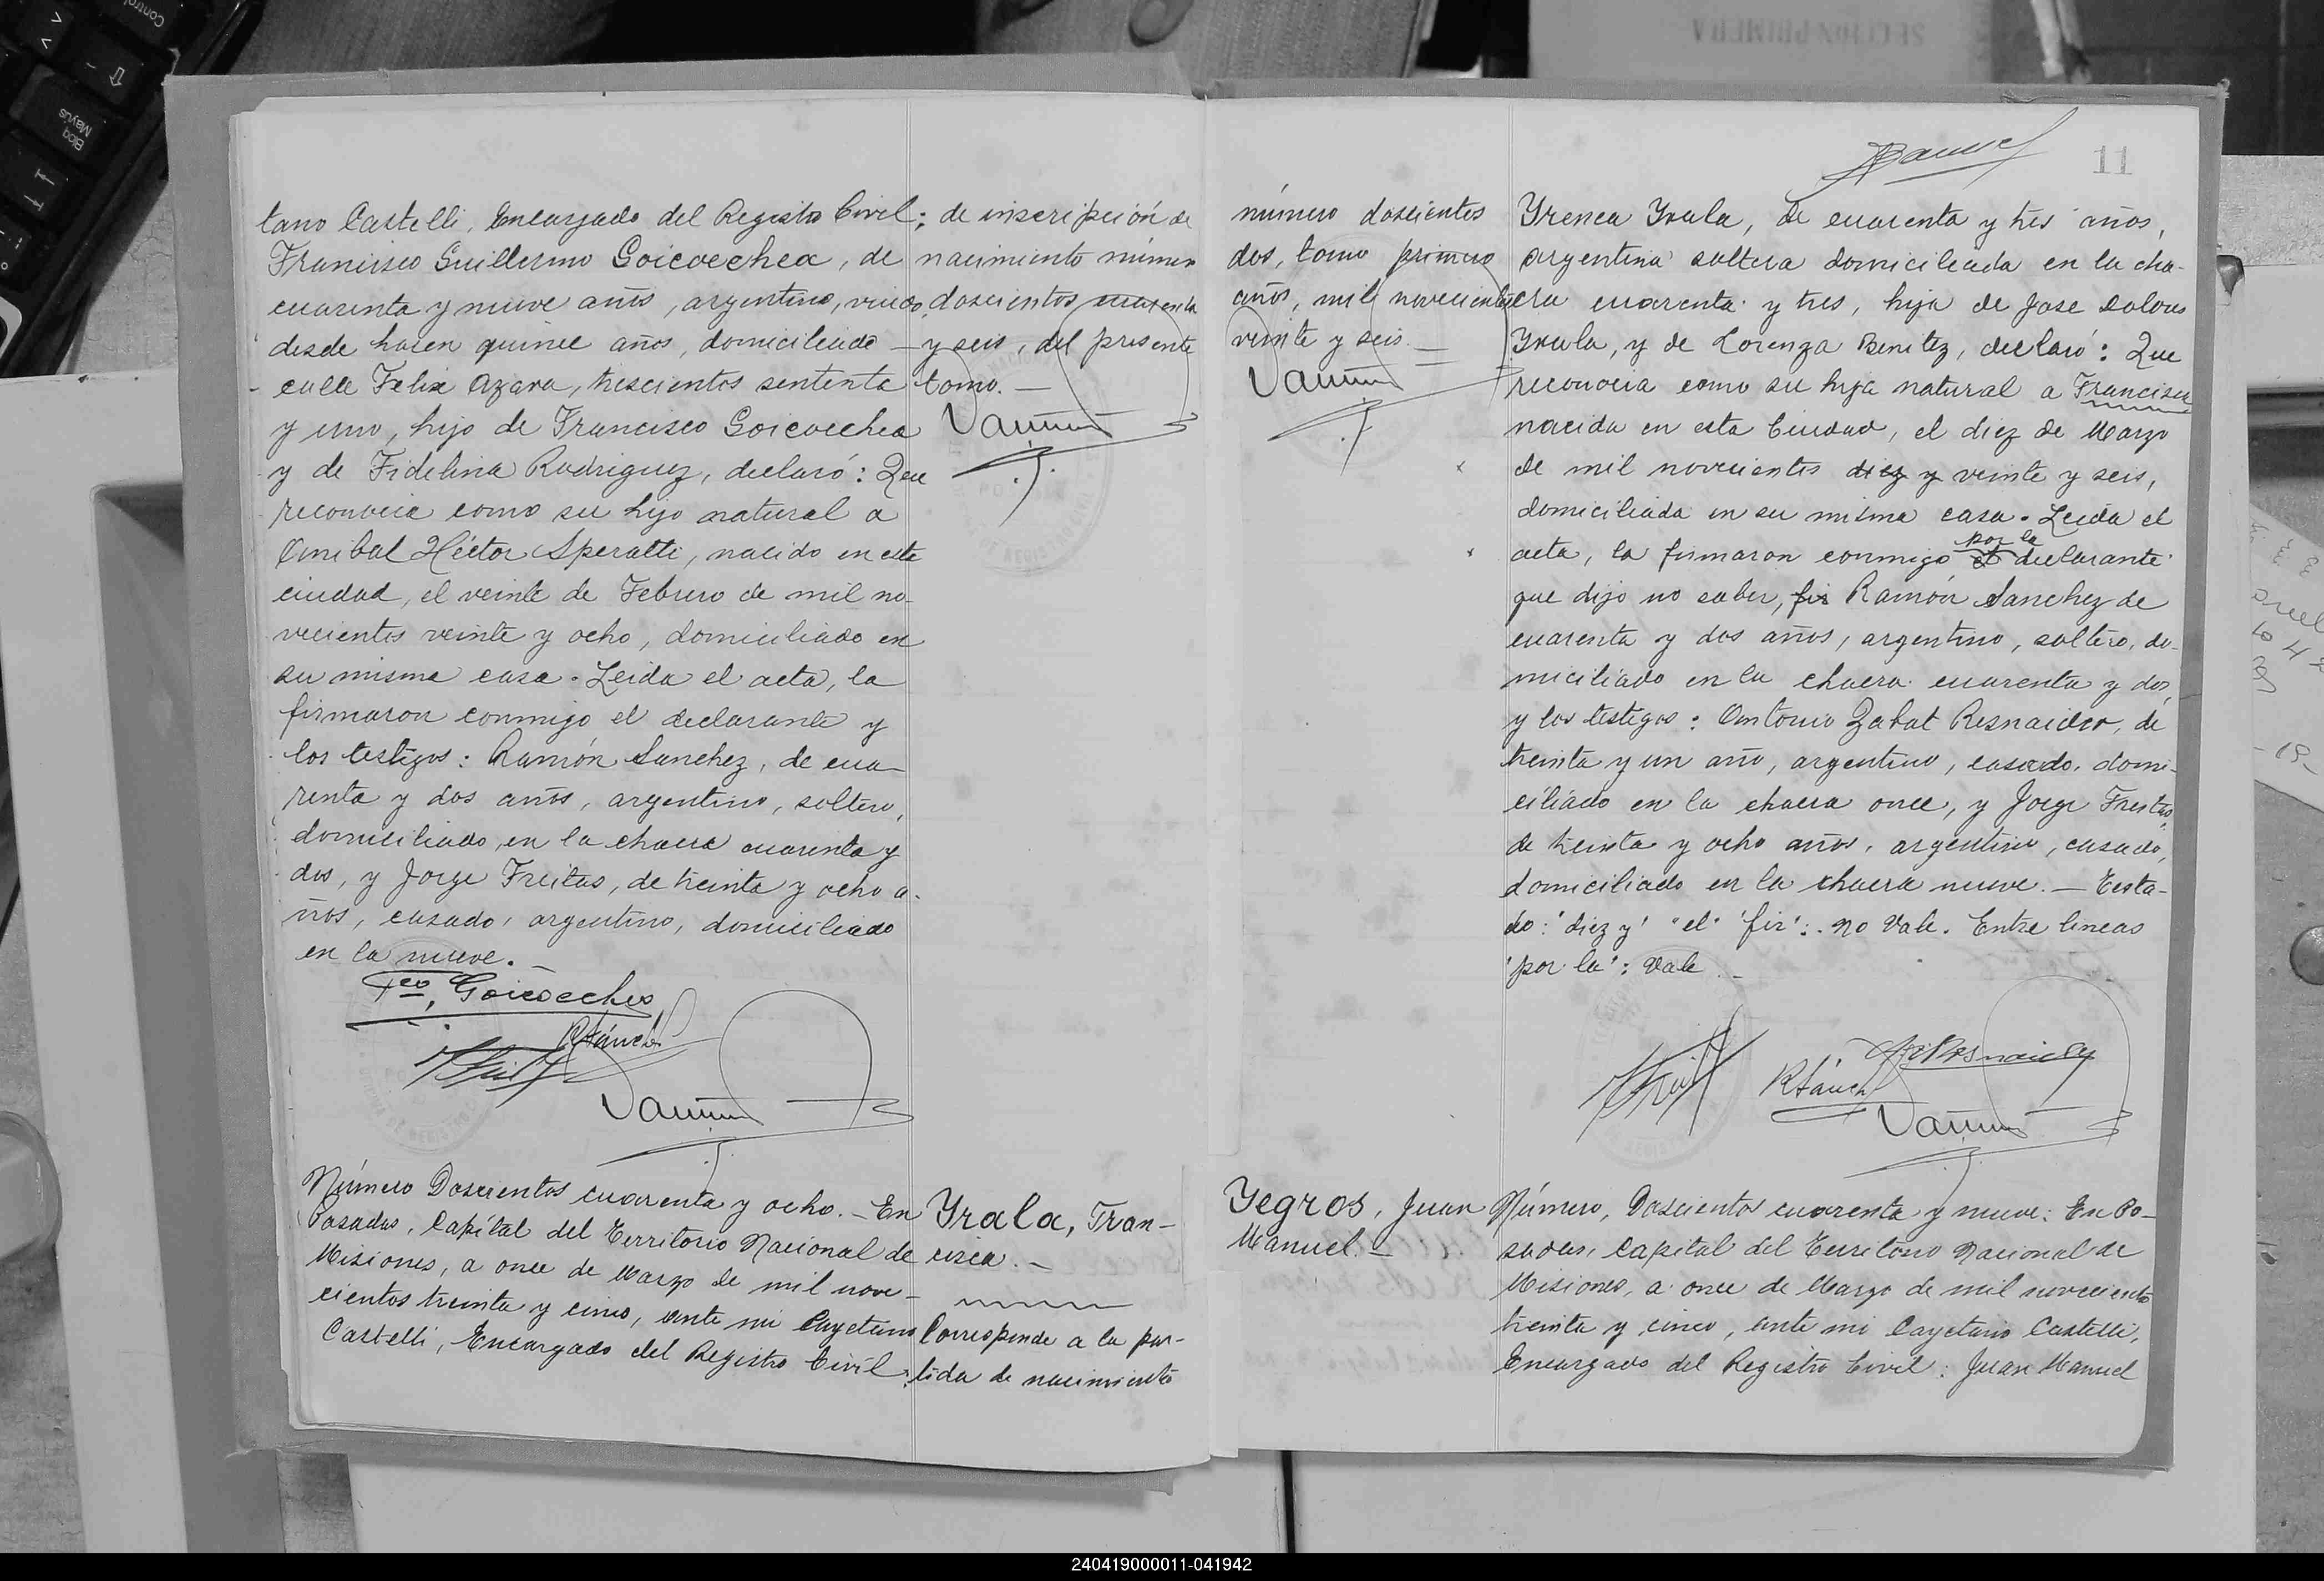 tano Castelli, Encargado del Registro Civil:
Francisco Guillermo Goicoechea, de
cuarenta y nueve años, argentino, viudo,
desde hacen quince años, domiciliado
calle Felix Azara, trescientos sententa
y uno, hijo de Francisco Goicoechea
y de Fidelina Rodriguez, declaró: Que
reconocia como su hijo natural a
Anibal Héctor Speratti, nacido en esta
ciudad, el veinte de Febrero de mil no-
vecientos veinte y ocho, domiciliado en
su misma casa. Leida el acta, la
firmaron conmigo el declarante y
los testigos: Ramón Sanchez, de cua-
renta y dos años, argentino, soltero,
domiciliado, en la chacra cuarenta y
dos, y Jorge Freitas, de treinta y ocho a-
ños, casado, argentino, domiciliado
en la nueve.
de inscripción de
nacimiento número
doscientos cuarenta
y seis, del presente
tomo.
Fco. Goicoechea
RSánch
Número Doscientos cuarenta y ocho. - En
Posadas, Capital del Territorio Nacional de
Misiones, a once de Marzo de mil nove-
cientos treinta y cinco, ante mi Cayetano
Castelli, Encargado del Registro Civil:
Yrala, Fran-
cisca. -
Corresponde a la par-
tida de nacimiento
11
número doscientos
dos, tomo primero
años, mil novecientos
veinte y seis. -
Yrenea Yrala, de cuarenta y tres años,
argentina soltera domiciliada en la cha-
cra cuarenta y tres, hija de Jose Dolores
Yrala, y de Lorenza Benitez, declaró: Que
reconocia como su hija natural a Francisca
nacida en esta Ciudad, el diez de Marzo
de mil novecientos diez y veinte y seis,
domiciliada en su misma casa. Leida el
acta, la firmaron conmigo el por la declarante
que dijo no saber, fir Ramón Sanchez de
cuarenta y dos años, argentino, soltero, do-
miciliado en la chacra cuarenta y dos,
y los testigos: Antonio Zabat Resnaider, de
treinta y un año, argentino, casado, domi-
ciliado en la chacra once, y Jorge Freitas,
de treinta y ocho años, argentino, casado,
domiciliado en la chacra nueve. - Testa-
do: "diez y" "el" "fir": No Vale. Entre lineas
"por la": Vale
RSánch
Yegros, Juan
Manuel. -
Número, Doscientos cuarenta y nueve: En Po-
sadas, Capital del Territorio Nacional de
Misiones, a once de Marzo de mil novecientos
treinta y cinco, ante mi Cayetano Castelli,
Encargado del Registro Civil: Juan Manuel
240419000011-041942